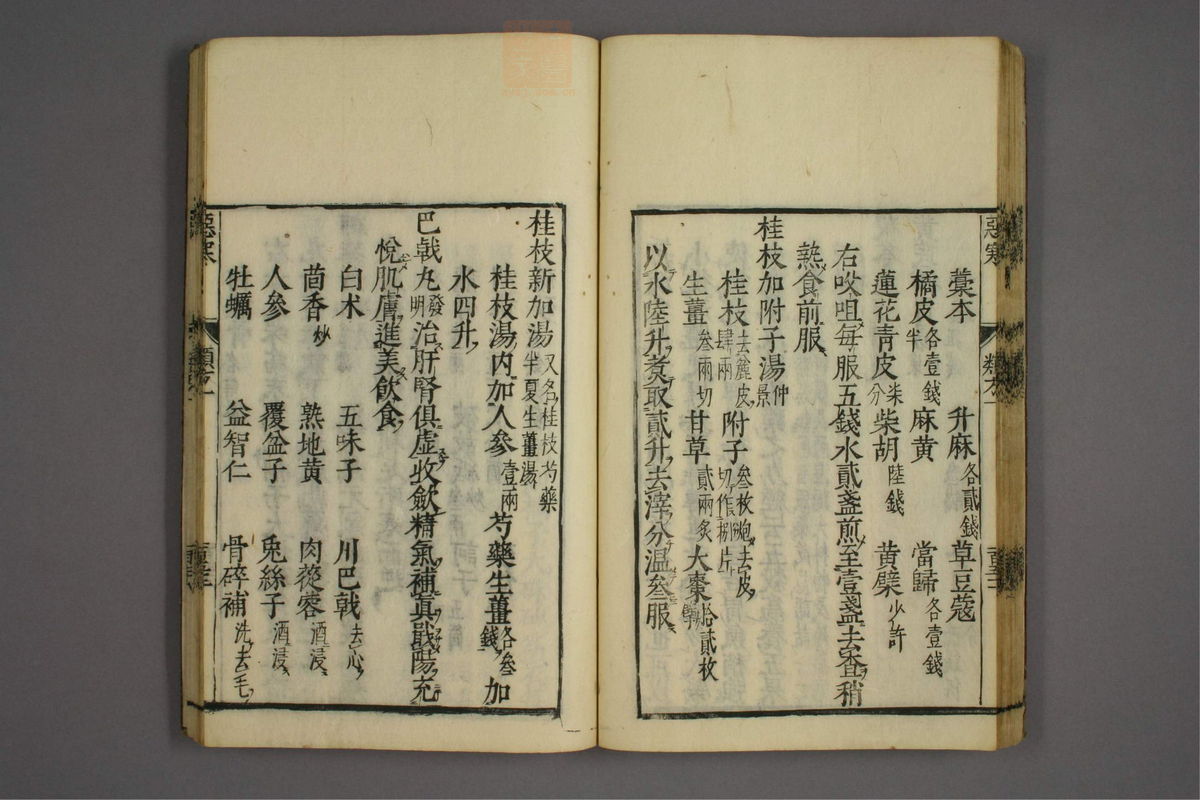 藁本　升麻各貳錢　草豆蔻
橘皮各壹錢半　麻黄　當歸各壹錢
蓮花青皮柒分　柴胡陸錢　黄檗少許
右㕮咀每服五錢水貳盞煎至壹盞去查稍
熱食前服
桂枝加附子湯仲景
桂枝去麄皮肆兩　附子叁枚炮去皮切作捌片
生薑叁兩切　甘草貳兩炙　大棗拾貳枚擘
以水陸升煮取貳升去滓分温叁服
桂枝新加湯又名桂枝芍藥半夏生薑湯
桂枝湯内加人參壹兩　芍藥生薑各叁錢　加
水四升
巴戟丸發明治肝腎俱虚收斂精氣補真戢陽充
悅肌膚進美飲食
白术　五味子　川巴戟去心
茴香炒　熟地黄　肉蓯蓉酒浸
人參　覆盆子　兎絲子酒浸
牡蠣　益智仁　骨碎補洗去毛
惡寒
惡寒